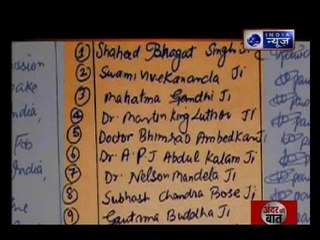 INDIA
न्यूज़
① Shaheed Bhagat Singh Ji
② Swami Vivekananda Ji
③ Mahatma Gandhi Ji
④ Dr. Martin king Luthor JI
⑤ Doctor Bhimrao Ambedkar Ji
⑥ Dr. A.P.J Abdul Kalam Ji
⑦ Dr. Nelson Mandela Ji
⑧ Subhash Chandra Bose Ji
⑨ Gautama Buddha Ji
mission
ake
India,
India,
अंदर की
बात